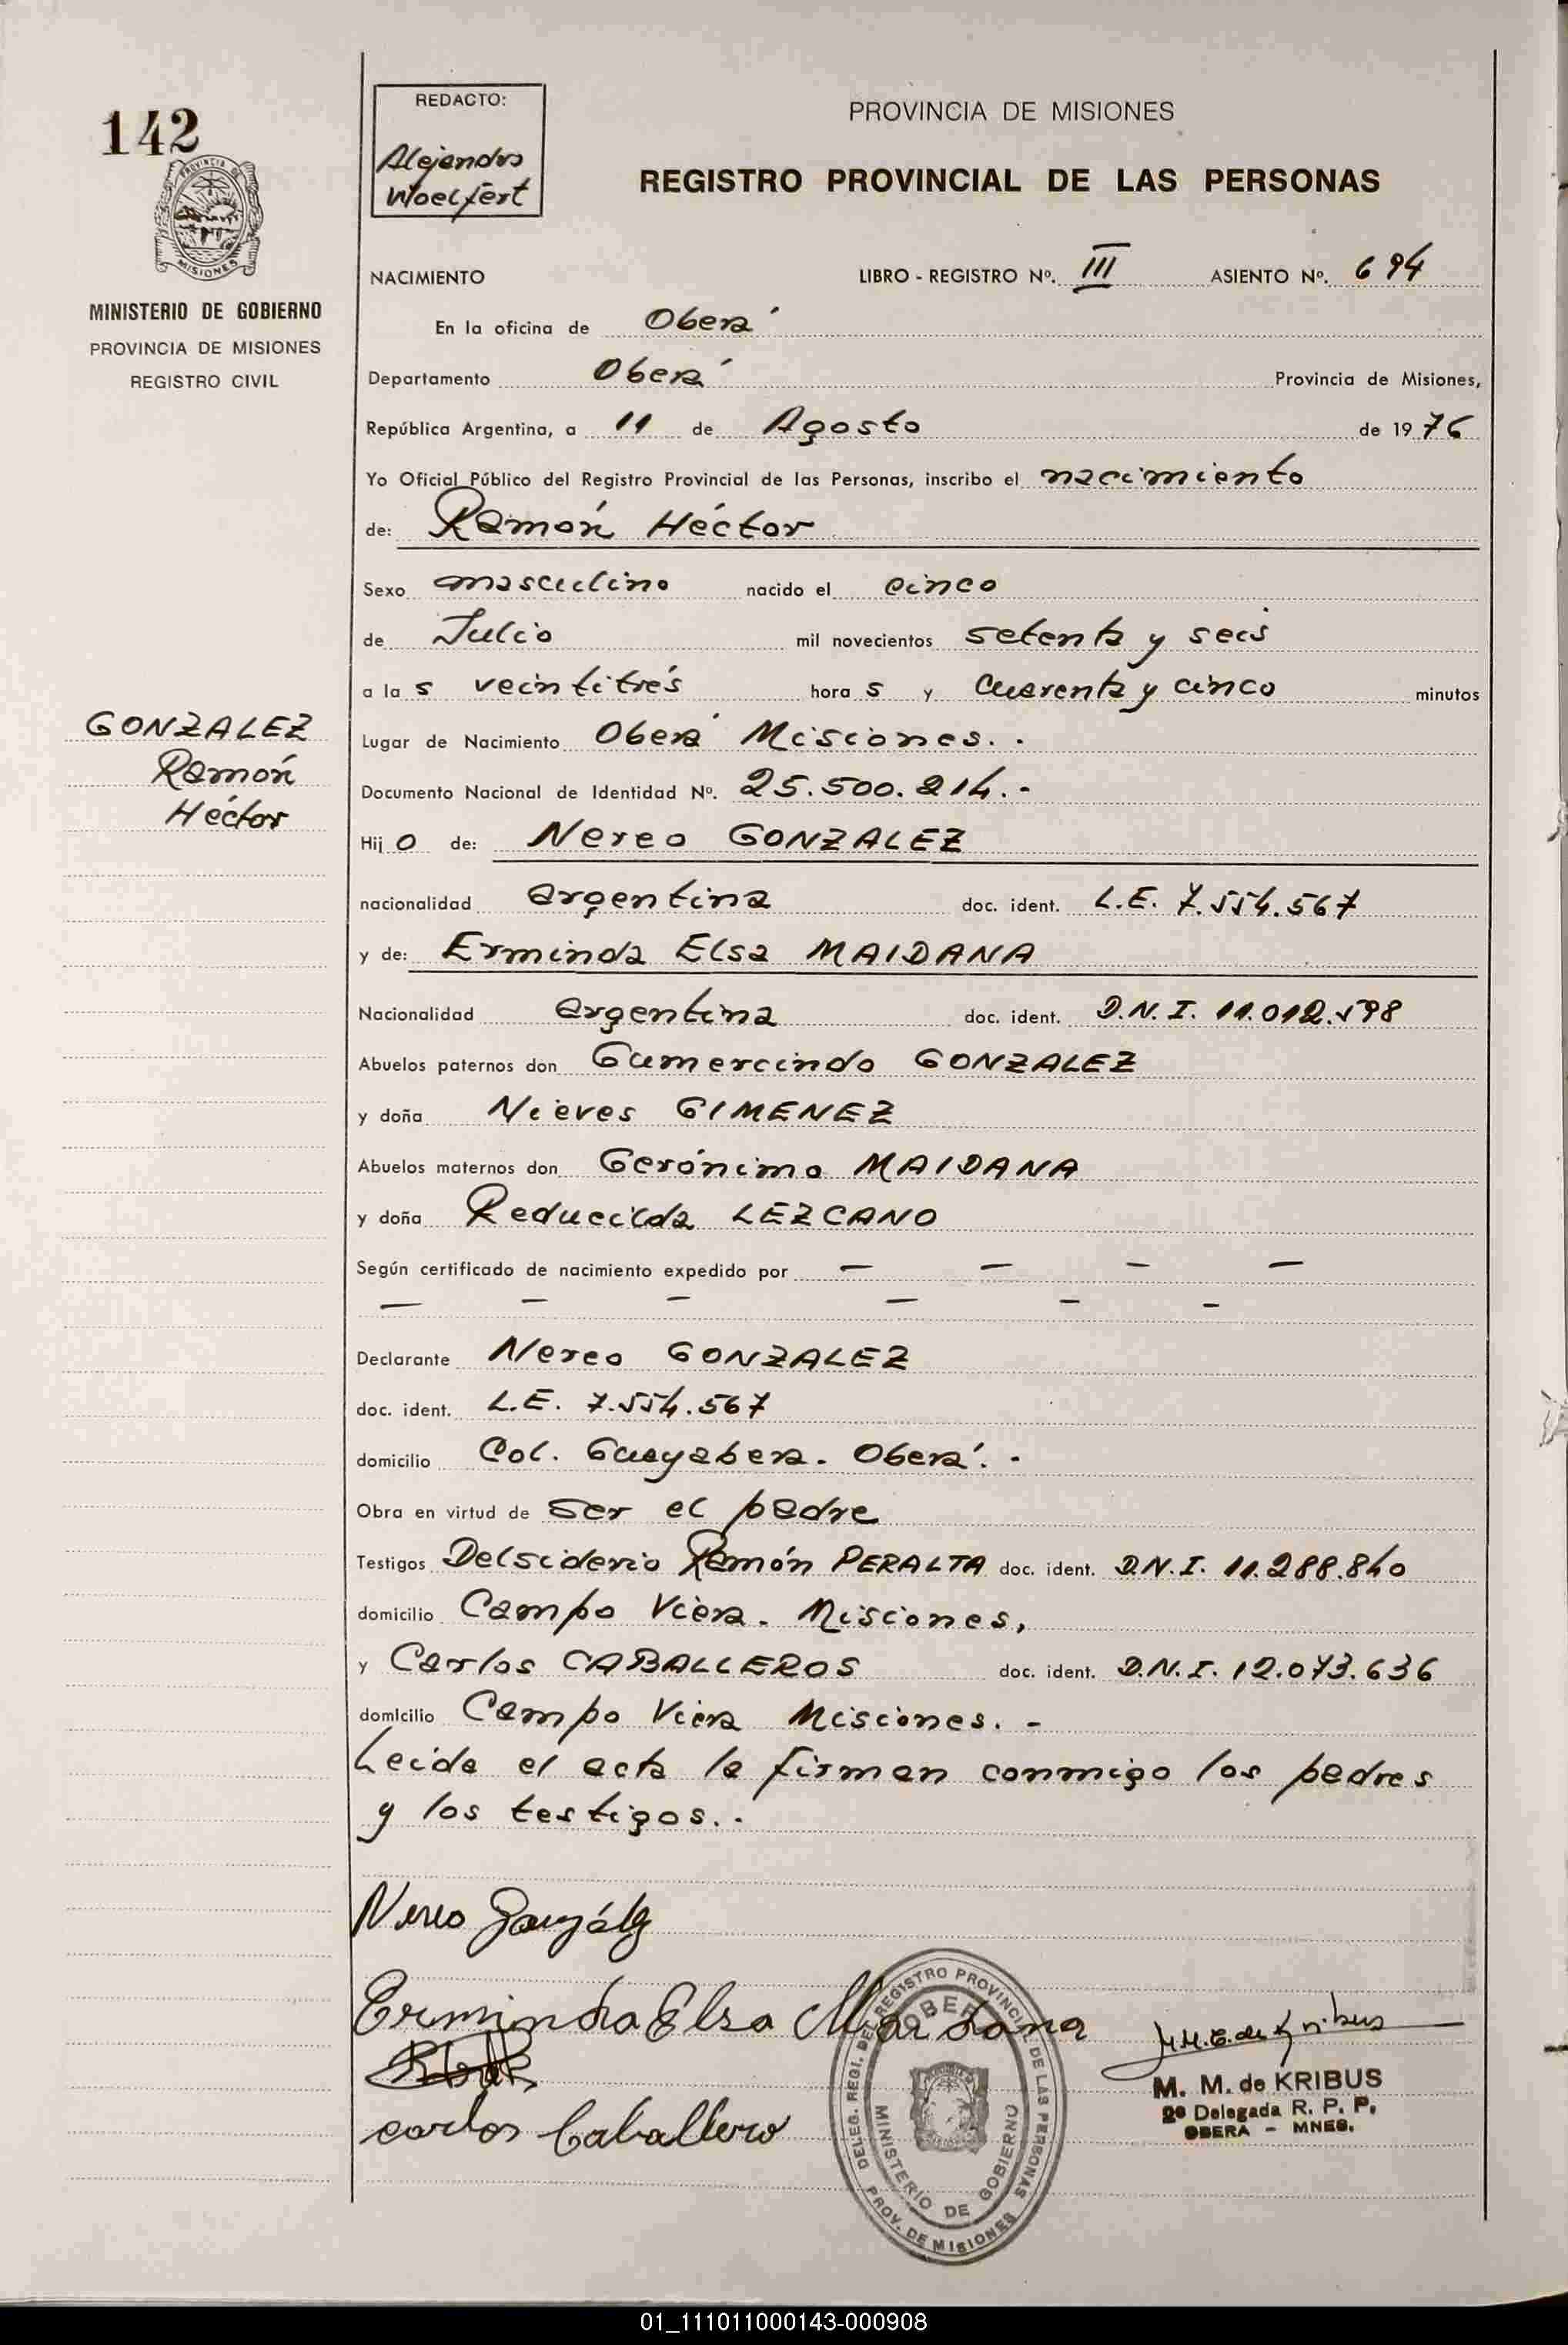 142
PROVINCIA DE
MISIONES
MINISTERIO DE GOBIERNO
PROVINCIA DE MISIONES
REGISTRO CIVIL
GONZALEZ
Ramón
Héctor
REDACTO:
Alejandro
Woelfert
PROVINCIA DE MISIONES
REGISTRO PROVINCIAL DE LAS PERSONAS
NACIMIENTO LIBRO - REGISTRO Nº. III ASIENTO Nº. 694
En la oficina de Oberá
Departamento Oberá Provincia de Misiones,
República Argentina, a 11 de Agosto de 1976
Yo Oficial Público del Registro Provincial de las Personas, inscribo el nacimiento
de: Ramón Héctor
Sexo masculino nacido el cinco
de Julio mil novecientos setenta y seis
a las veintitrés horas y cuarenta y cinco minutos
Lugar de Nacimiento Oberá Misiones. -
Documento Nacional de Identidad Nº. 25.500.214. -
Hijo de: Nereo GONZALEZ
nacionalidad argentina doc. ident. L.E. 7.554.567
y de: Erminda Elsa MAIDANA
Nacionalidad argentina doc. ident. D.N.I. 11.012.598
Abuelos paternos don Gumercindo GONZALEZ
y doña Nieves GIMENEZ
Abuelos maternos don Gerónimo MAIDANA
y doña Reducilda LEZCANO
Según certificado de nacimiento expedido por — — — —
— — — — — —
Declarante Nereo GONZALEZ
doc. ident. L.E. 7.554.567
domicilio Col. Guayabera. Oberá. -
Obra en virtud de ser el padre
Testigos Delsiderio Ramón PERALTA doc. ident. D.N.I. 11.288.840
domicilio Campo Viera. Misiones,
y Carlos CABALLEROS doc. ident. D.N.I. 12.073.636
domicilio Campo Viera Misiones. -
Leida el acta la firman conmigo los padres
y los testigos. -
Nereo González
Erminda Elsa Maidana
carlos Caballero
DELEG. REGI. DEL REGISTRO PROVINCIAL DE LAS PERSONAS
OBERA
MINISTERIO DE GOBIERNO
PROV. DE MISIONES
M.M.E. de Kribus
M. M. de KRIBUS
2ª Delegada R. P. P.
OBERA - MNES.
01_111011000143-000908